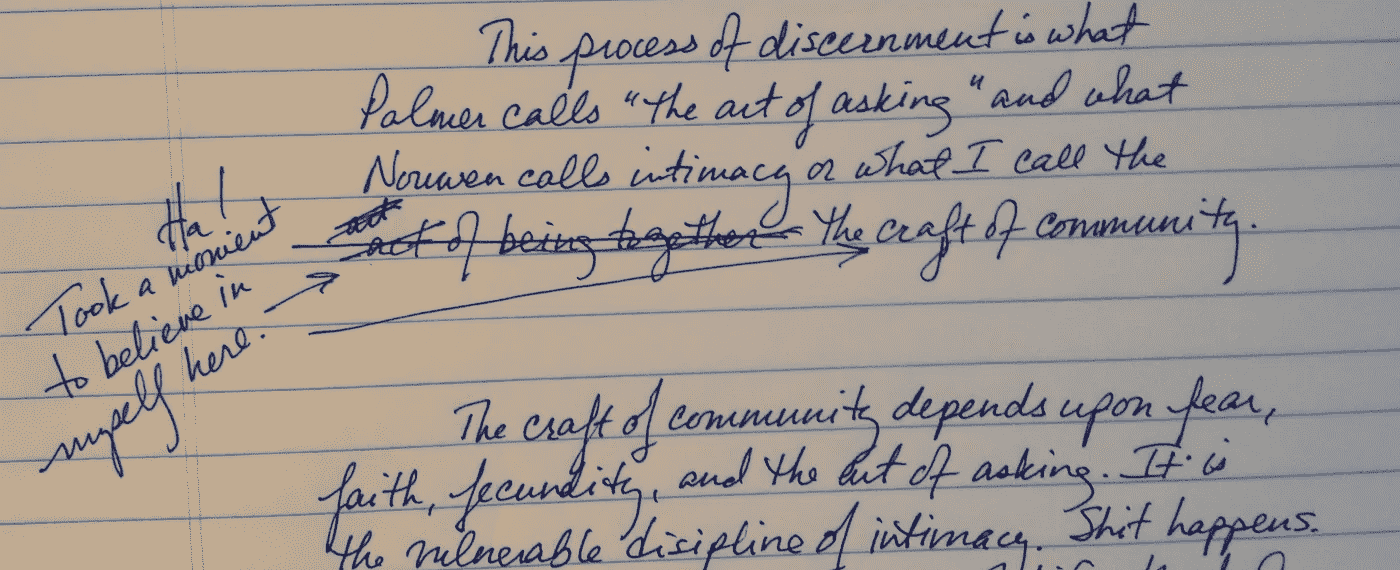 This process of discernment is what
Palmer calls "the art of asking" and what
Nouwen calls intimacy or what I call the
art
act of being together the craft of community.
Ha!
Took a moment
to believe in
myself here.
The craft of community depends upon fear,
faith, fecundity, and the art of asking. It is
the vulnerable discipline of intimacy. Shit happens.